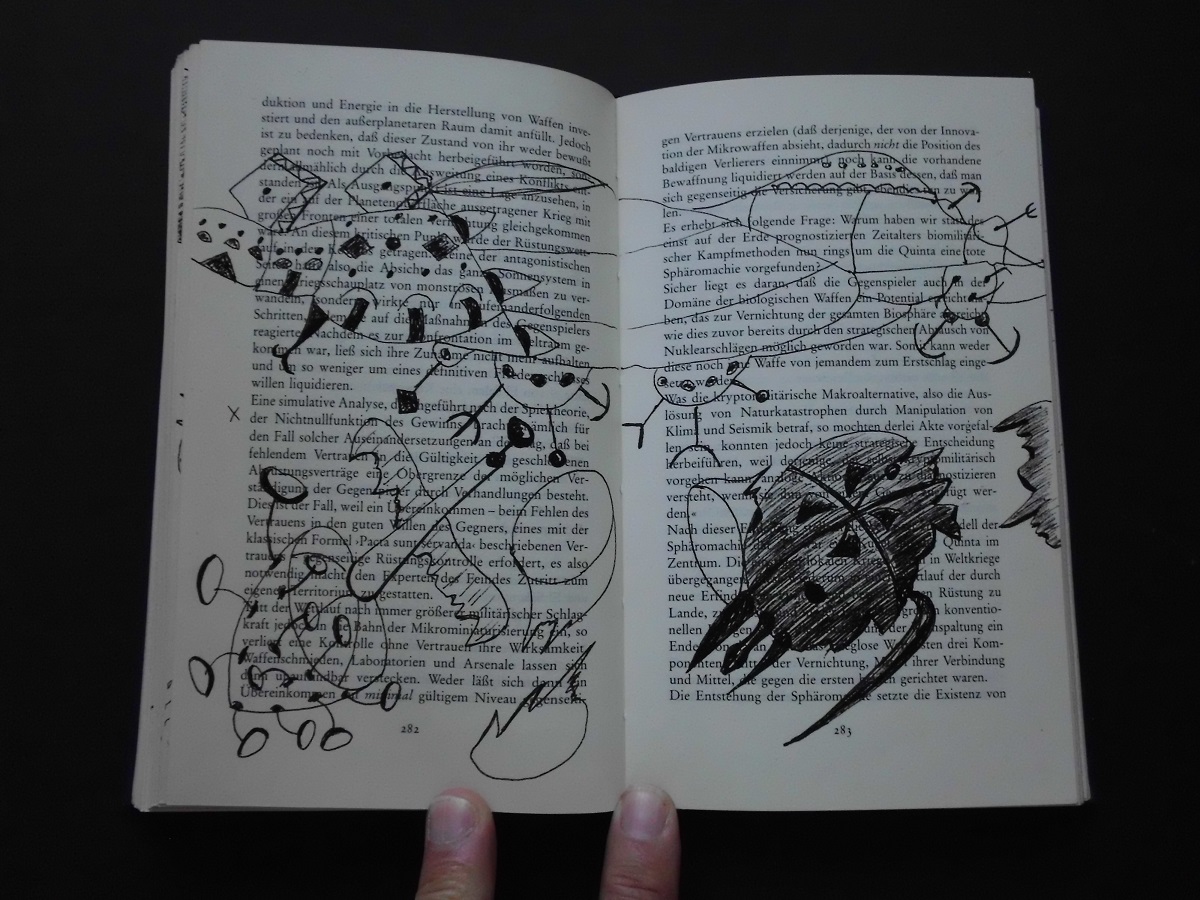 duktion und Energie in die Herstellung von Waffen inve-
stiert und den außerplanetaren Raum damit anfüllt. Jedoch
ist zu bedenken, daß dieser Zustand von ihr weder bewußt
geplant noch mit Vorbedacht herbeigeführt worden, son-
dern allmählich durch die Ausweitung eines Konflikts ent-
standen ist. Als Ausgangspunkt ist eine Lage anzusehen, in
der ein auf der Planetenoberfläche ausgetragener Krieg mit
großen Fronten einer totalen Vernichtung gleichgekommen
wäre. An diesem kritischen Punkt wurde der Rüstungswett-
lauf in den Kosmos getragen. Keine der antagonistischen
Seiten hatte also die Absicht, das ganze Sonnensystem in
einen Kriegsschauplatz von monströsen Ausmaßen zu ver-
wandeln, sondern wirkte nur in aufeinanderfolgenden
Schritten, indem sie auf die Maßnahmen des Gegenspielers
reagierte. Nachdem es zur Konfrontation im Weltraum ge-
kommen war, ließ sich ihre Zunahme nicht mehr aufhalten
und um so weniger um eines definitiven Friedensschlusses
willen liquidieren.
Eine simulative Analyse, durchgeführt nach der Spieltheorie,
x der Nichtnullfunktion des Gewinns, brachte nämlich für
den Fall solcher Auseinandersetzungen an den Tag, daß bei
fehlendem Vertrauen in die Gültigkeit geschlossenen
Abrüstungsverträge eine Obergrenze der möglichen Ver-
ständigung der Gegenspieler durch Verhandlungen besteht.
Dies ist der Fall, weil ein Übereinkommen – beim Fehlen des
Vertrauens in den guten Willen des Gegners, eines mit der
klassischen Formel ›Pacta sunt servanda‹ beschriebenen Ver-
trauens – gegenseitige Rüstungskontrolle erfordert, es also
notwendig macht, den Experten des Feindes Zutritt zum
eigenen Territorium zu gestatten.
Tritt der Wettlauf nach immer größerer militärischer Schlag-
kraft jedoch in die Bahn der Mikrominiaturisierung ein, so
verliert eine Kontrolle ohne Vertrauen ihre Wirksamkeit.
Waffenschmieden, Laboratorien und Arsenale lassen sich
dann unauffindbar verstecken. Weder läßt sich dann ein
Übereinkommen auf minimal gültigem Niveau gegenseiti-
282
gen Vertrauens erzielen (daß derjenige, der von der Innova-
tion der Mikrowaffen absieht, dadurch nicht die Position des
baldigen Verlierers einnimmt), noch kann die vorhandene
Bewaffnung liquidiert werden auf der Basis dessen, daß man
sich gegenseitig die Versicherung gibt, ebendies tun zu wol-
len.
Es erhebt sich folgende Frage: Warum haben wir statt des
einst auf der Erde prognostizierten Zeitalters biomilitäri-
scher Kampfmethoden nun rings um die Quinta eine tote
Sphäromachie vorgefunden?
Sicher liegt es daran, daß die Gegenspieler auch in der
Domäne der biologischen Waffen ein Potential erreicht ha-
ben, das zur Vernichtung der gesamten Biosphäre ausreicht,
wie dies zuvor bereits durch den strategischen Abtausch von
Nuklearschlägen möglich geworden war. Somit kann weder
diese noch jene Waffe von jemandem zum Erstschlag einge-
setzt werden.
Was die kryptomilitärische Makroalternative, also die Aus-
lösung von Naturkatastrophen durch Manipulation von
Klima und Seismik betraf, so mochten derlei Akte vorgefal-
len sein, konnten jedoch keine strategische Entscheidung
herbeiführen, weil derjenige, der selbst kryptomilitärisch
vorgehen kann, analoge zu diagnostizieren
versteht, wenn sie ihm von zugefügt wer-
den.«
Nach dieser Einleitung dell der
Sphäromachie Quinta im
Zentrum. Die lokalen in Weltkriege
übergegangen lauf der durch
neue Erfind Rüstung zu
Lande, zu konventio-
nellen der Kernspaltung ein
Ende
der Vernichtung, ihrer Verbindung
und Mittel, die gegen die ersten beiden gerichtet waren.
Die Entstehung der Sphäromachie setzte die Existenz von
283